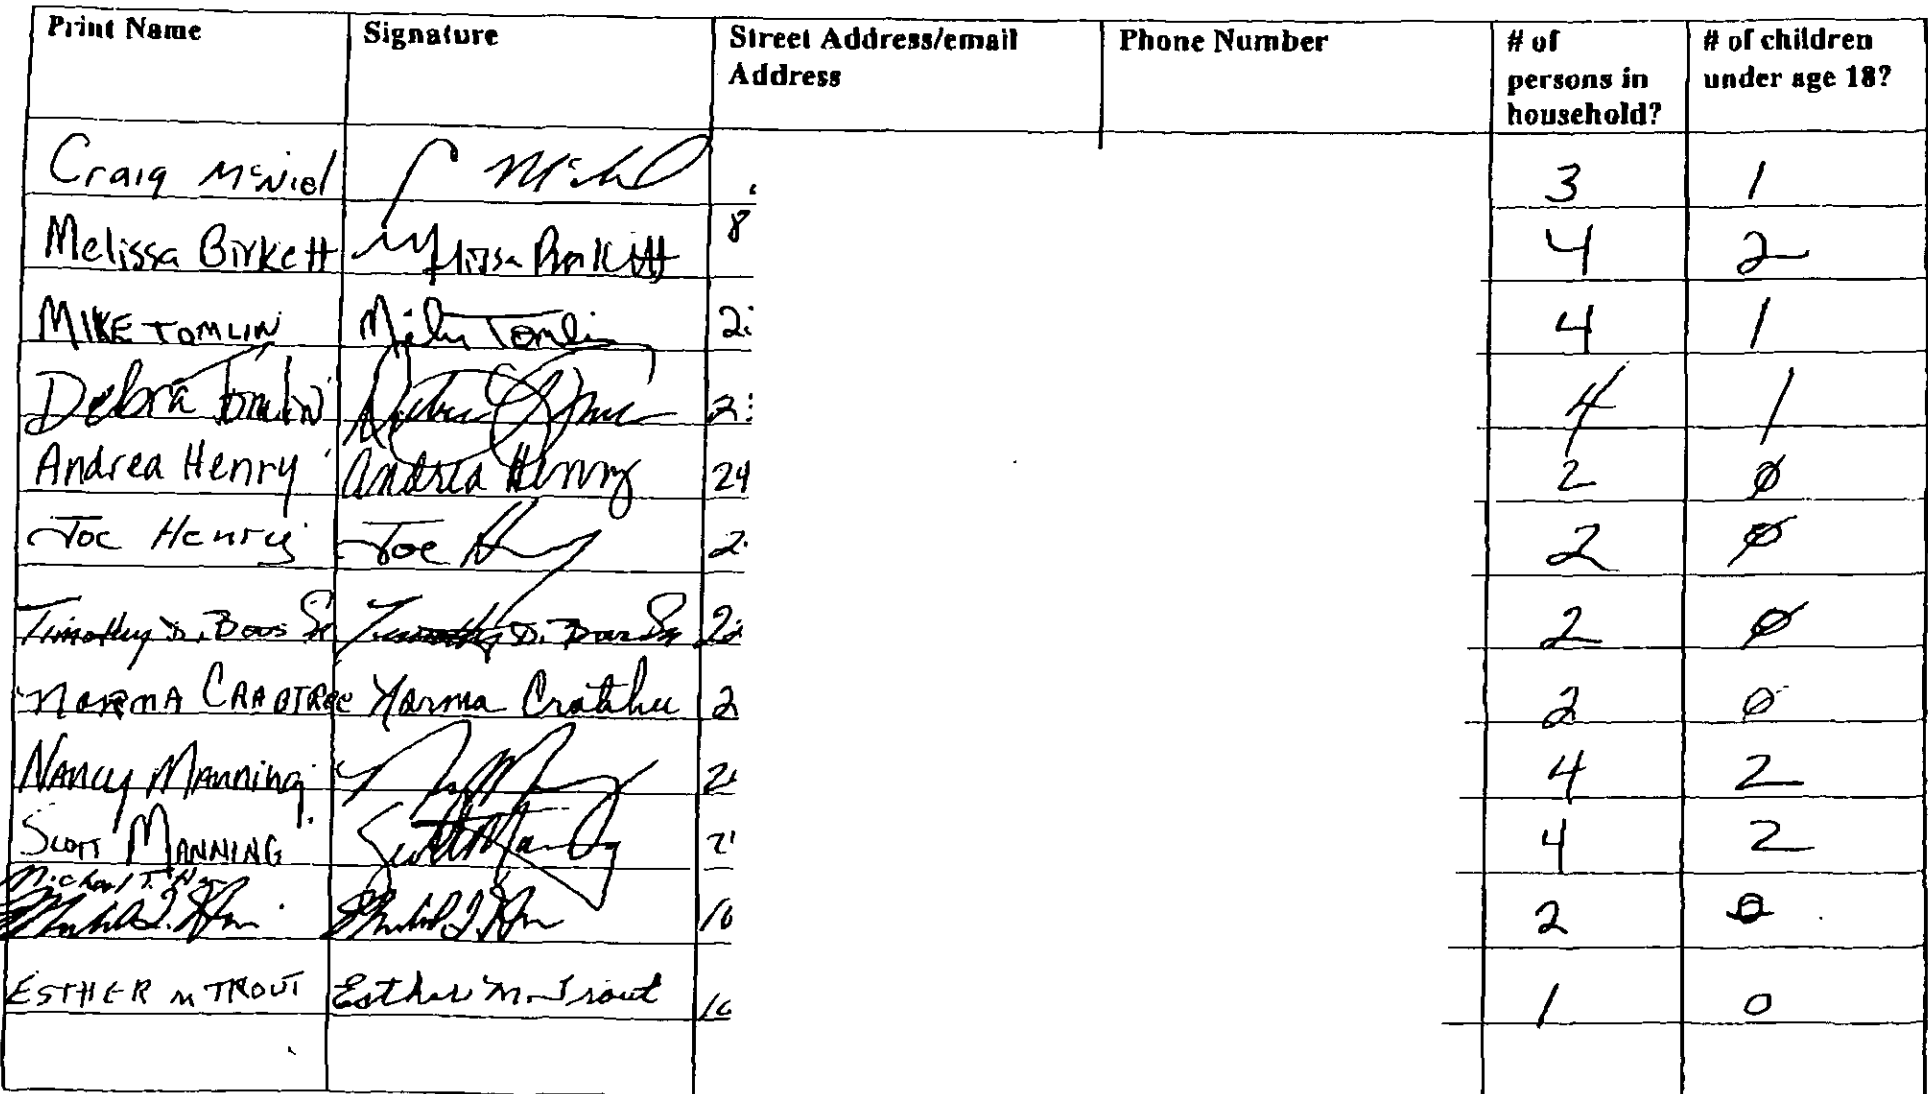 Print Name Signature Street Address/email Address Phone Number # of persons in household? # of children under age 18?
Craig McNiel 3 1
Melissa Birkett Melissa Birkett 8 4 2
MIKE TOMLIN Mike Tomlin 2 4 1
Debra Tomlin 2 4 1
Andrea Henry Andrea Henry 24 2 0
Joe Henry Joe 2 2 0
Timothy D. Boos Sr Timothy D. Boos Sr 2 2 0
Norma CRABTREE Norma Crabtree 2 2 0
NANCY MANNING 2 4 2
SCOTT MANNING Scott 2 4 2
Michael T. 16 2 0
ESTHER M TROUT Esther M. Trout 16 1 0